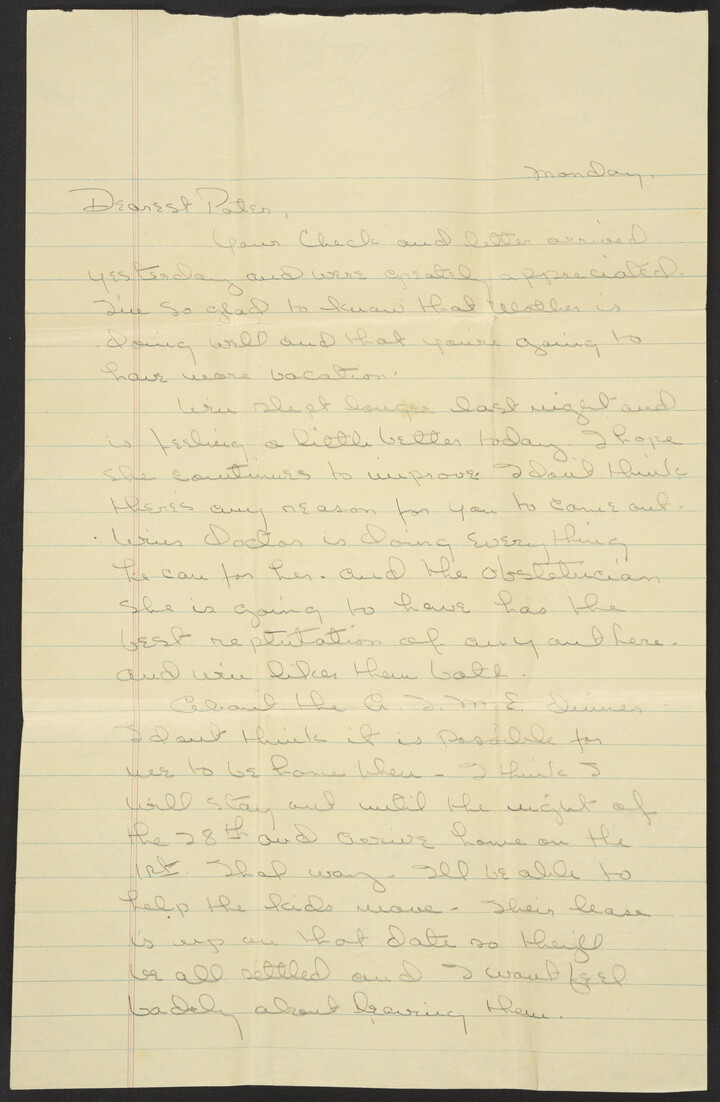 Monday.
Dearest Pater,
Your check and letter arrived
yesterday and were greatly appreciated.
I'm so glad to know that Mother is
doing well and that you're going to
have more vacation.
Win slept longer last night and
is feeling a little better today. I hope
she continues to improve I don't think
there's any reason for you to come out.
Wins doctor is doing everything
he can for her. and the obstetrician
she is going to have has the
best reputation of any out here.
and Win likes them both.
About the A. I. M. E. dinner
I dont think it is possible for
me to be home then - I think I
will stay out until the night of
the 28th and arrive home on the
1st. That way - I'll be able to
help the kids move - Their lease
is up on that date so they'll
be all settled and I wont feel
badely about leaving them.